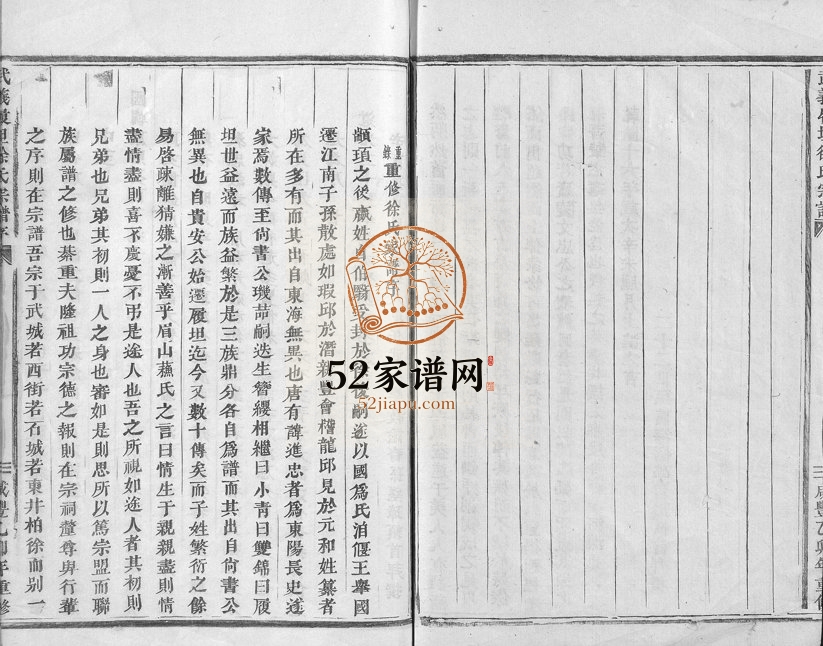 武義履坦徐氏宗譜
咸豐乙卯年重修
重錄重修徐氏
顓頊之後嬴姓自伯翳受封於徐後嗣遂以國爲氏洎偃王舉國
遷江南子孫散處如瑕邱於潛新豐會稽龍邱見於元和姓纂者
所在多有而其出自東海無異也唐有諱進忠者爲東陽長史遂
家焉數傳至尚書公璣喆嗣迭生簪纓相繼曰小青曰雙錦曰履
坦世益遠而族益繁於是三族鼎分各自爲譜而其出自尚書公
無異也自貴安公始遷履坦迄今又數十傳矣而子姓繁衍之餘
易啓疎離猜嫌之漸善乎眉山蘓氏之言曰情生于親親盡則情
盡情盡則喜不慶憂不弔是途人也吾之所視如途人者其初則
兄弟也兄弟其初則一人之身也審如是則思所以篤宗盟而聯
族屬譜之修也綦重夫隆祖功宗德之報則在宗祠釐尊卑行輩
之序則在宗譜吾宗于武城若西街若石城若東井柏徐而別一
武義履坦徐氏宗譜序
一
咸豐乙卯年重修
52家谱网
52jiapu.com